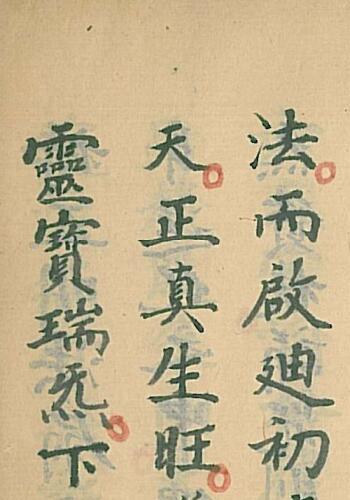 法。而啟迪初
天。正真生旺。
靈寶瑞炁。下